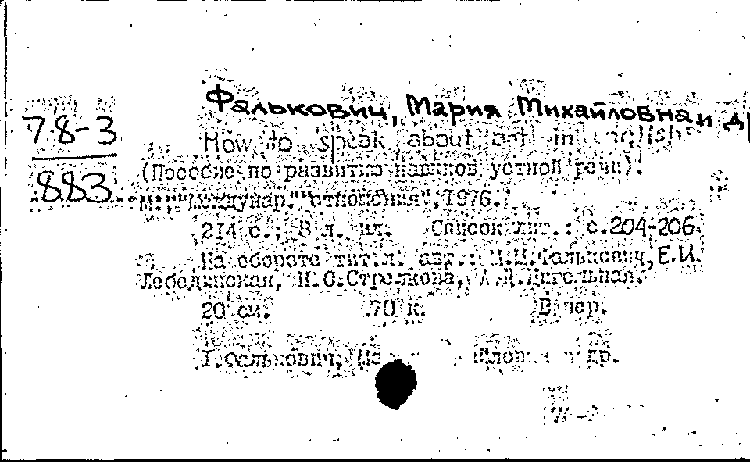 Фалькович, Мария Михайловна и др
78-3
883
How to speak about art in English
(Пособие по развитию навыков устной речи).
М., "Междунар. отношения", 1976.
214 с.; 8 л. ил. Список лит.: с.204-206.
На обороте тит.л. авт.: М.М.Фалькович, Е.И.
Лебединская, Н.О.Стрелкова,
20 см. 70 к. В пер.
I.Фалькович, др.